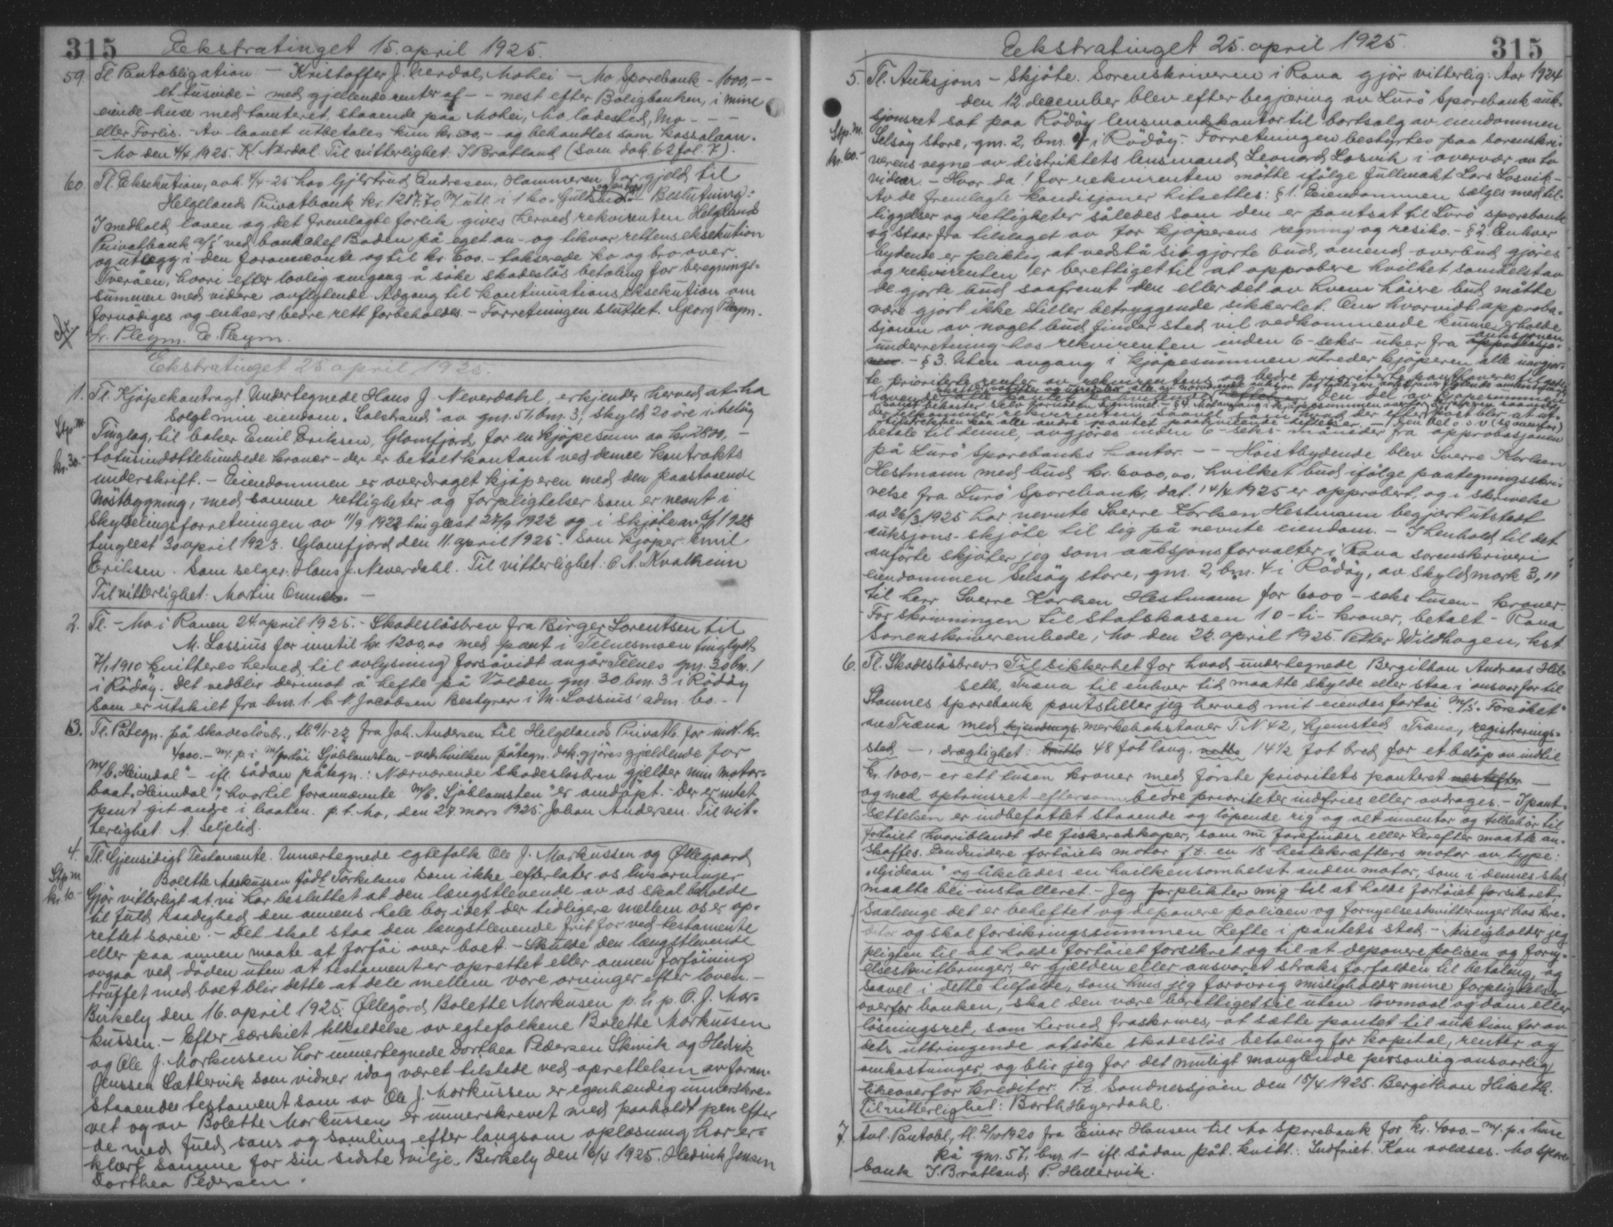 315 Ekstratinget 15. april 1925.
59. Tl. Pantobligation - Kristoffer J. Nerdal, Mohei - Mo Sparebank - 1000,- -
et tusinde - med gjeldende renter af - - nest efter Boligbanken, i mine
eiende huse med tomteret, staaende paa Mohei, Mo ladested, Mo - - -
eller Forlis. - Av laanet utbetales kun kr. 500,- og behandles som kassalaan.
- Mo den 4/4 1925. K. Nerdal. Til vitterlighet: J. Bratland (som dok. 62 fol. 7).
60. Tl. Eksekution, avh. 4/4-25 hos Gjertrud Endresen, Hammeren for gjeld til
Helgelands Privatbank kr. 1217.70
Beslutning:
I medhold loven og det fremlagte forlik gives herved rekvirenten Helgelands
Privatbank a/s ved bankchef Boden på eget an- og tilsvar rettens eksekution
og utlegg i den forannevnte og til kr. 600.- takserede ko og bro over
Tveråen, hvori efter lovlig omgang å söke skadeslös betaling for beregnings-
summen med videre avflytende Adgang til kontinuations eksekution om
fornödiges og enhvers bedre rett forbeholdes - Forretningen sluttet. Georg Pleym.
Fr. Pleym. E. Pleym.
Ekstratinget 25 april 1925.
1. Tl. Kjöpekontragt. Undertegnede Hans J. Neverdahl, erkjender herved at ha
solgt min eiendom "Solstrand" av gnr. 57. bnr. 3, skyld 20 öre i Melöy
Stp. m. Tinglag, til baker Emil Eriksen, Glomfjord, for en kjöpesum av kr. 2800,-
kr. 30.- totusindottehundrede kroner - der er betalt kontant ved denne kontrakts
underskrift. - Eiendommen er overdraget kjöperen med den paastaaende
Nöstbygning, med samme rettigheter og forpligtelser som er nevnt i
Skyldelingsforretningen av 11/9 1922 tinglest 27/9 1922 og i skjöte av 6/1 1923
tinglest 30 april 1923. Glomfjord den 11. april 1925. Som kjöper: Emil
Eriksen. Som selger: Hans J. Neverdahl. Til vitterlighet: C. A. Kvalheim
Til vitterlighet: Martin Onnes. -
2. Tl. - Mo i Ranen 24 april 1925. - Skadeslösbrev fra Birger Lorentsen til
M. Lossius for inntil kr. 1200,00 med pant i Telnesmoen tinglyst
7/1 1910 kvitteres herved til avlysning forsåvidt angår Telnes gnr. 30 bnr. 1
i Rödöy. Det vedblir derimot å hefte på Volden gnr. 30 bnr. 3 i Rödöy
som er utskilt fra bnr. 1. C. N. Jacobsen Bestyrer i M. Lossius' adm. bo. -
3. Tl. Påtegn. på skadeslösbr., tl. 9/1-23 fra Joh. Andersen til Helgelands Privatb. for indt. kr.
4000.- m. p. i m/sköi Sjöblomsten - ved hvilken påtegn. dok. gjöres gjeldende for
m/b. "Heimdal" ifl. sådan påtegn.: Nærværende skadeslösbrev gjelder nun motor-
baat "Heimdal", hvortil forannevnte m/b. "Sjöblomsten" er omdöpt. - Der er intet
pant git andre i baaten. p. t. Mo, den 27. mars 1925. Johan Andersen. Til vit-
terlighet: A. Seljelid.
4. Tl. Gjensidigt Testamente. Undertegnede egtefolk Ole J. Markussen og Øllegaard
Bolette Markussen födt Torkelsen som ikke efterlater os livsarvinger
Stp. m. Gjör vitterligt at vi har besluttet at den længstlevende av os skal beholde
kr. 10.- til fuld raadighed den annens hele bo, idet der tidligere mellem os er op-
rettet særeie. - Det skal staa den længstlevende frit for ved testamente
eller paa annen maate at forföi over boet. - Skulde den længstlevende
avgaa ved döden uten at testament er oprettet eller annen forföining
truffet med boet blir dette at dele mellem vore arvinger efter loven. -
Birkely den 16. april 1925. Øllegård Bolette Markusen p. h. p. O. J. Mar-
kussen. - Efter særskiet tilkaldelse av egtefolkene Bolette Markussen
og Ole J. Markussen har unnertegnede Dorthea Pedersen Skivik og Hedvik
Jenssen Sætkervik som vidner idag været tilstede ved oprettelsen av foran-
staaende testament som av Ole J. Markussen er egenhændig unnerskre-
vet og av Bolette Markussen er unnerskrevet med paaholdt pen efter
de med fuld sans og samling efter langsom oplæsning har er-
klært samme for sin sidste vilje. Birkely den 16/4 1925. Hedvik Jensen
Dorthea Pedersen.
Ekstratinget 25. april 1925. 315
5. Tl. Auksjons-skjöte. Sorenskriveren i Rana gjör vitterlig: Aar 1924
den 12 december blev efter begjæring av Lurö Sparebank auk-
sjonsret sat paa Rödöy lensmandskontor til bortsalg av eiendommen
Stp. m. Selsöy store, gnr. 2, bnr. 4 i Rödöy. Forretningen bestyrtes paa sorenskri-
kr. 60.- verens vegne av distriktets lensmand Leonard Losvik i overvær av to
vidner. - Hvor da! for rekvirenten mötte ifölge fullmakt Lars Losvik -
Av de fremlagte kondisjoner hitsettes: § 1. Eiendommen sælges med til-
liggelser og rettigheter således som den er pantsat til Lurö sparebank
og staar fra tilslaget av for kjöperens regning og resiko. - § 2. Enhver
bydende er pliktig at vedstå sit gjorte bud, omend overbud gjöres
og rekvirenten er berettiget til at approbere hvilket somhelst av
de gjorte bud saafremt den eller det av hvem höire bud måtte
være gjort ikke stiller betryggende sikkerhet. Om hvorvidt approba-
sjonen av noget bud finder sted vil vedkommende kunne erholde
underretning hos rekvirenten inden 6 - seks - uker fra auksjonen
- § 3. Uten avgang i kjöpesummen utreder kjöperen alle
te prioriterte renter
betale til denne, avgjöres inden 6 - seks - måneder fra approbasjonen
på Lurö Sparebanks kontor. - - Höistbydende blev Sverre Karlsen
Hestmann med bud kr. 6000,00, hvilket bud ifölge paategningsskri-
velse fra Lurö Sparebank, dat. 14/4 1925 er approbert, og i skrivelse
av 26/3 1925 har nevnte Sverre Karlsen Hestmann begjært utstedt
auksjons-skjöte til sig på nevnte eiendom. - I henhold til det
anförte skjöter jeg som auksjonsforvalter i Rana sorenskriveri
eiendommen Selsöy store, gnr. 2, bnr. 4 i Rödöy, av skyldmark 3,11
til herr Sverre Karlsen Hestmann for 6000 - seks tusen - kroner.
For skrivningen til Statskassen 10 - ti - kroner, betalt. - Rana
Sorenskriverembede, Mo den 22. april 1925. Petter Wildhagen, kst.
6. Tl. Skadeslösbrev: Til sikkerhet for hvad undertegnede Bergithon Andreas Hel-
seth, Træna til enhver tid maatte skylde eller staa i ansvar for til
Stamnes sparebank pantstiller jeg herved mit eiendes fartöi m/s. "Forsöket"
av Træna med kjendings merkebokstaver T.N 42, hjemsted Træna, registrerings-
sted -, drægtighet: brutto 48 fot lang. netto 14 1/2 fot bred for et belöp av indtil
kr. 1000,- er ett tusen kroner med förste prioritets panteret nest efter -
og med optrinsret eftersom bedre prioriteter indfries eller avdrages. - I pant-
settelsen er indbefattet staaende og löpende rig og alt inventar og tilbehör til
fartöiet hvoriblandt de fiskeredskaper, som nu forefindes eller herefter maatte an-
skaffes. Endvidere fartöiets motor f. t. en 18 hestekræfters motor av type:
"Gideon" og likeledes en hvilkensomhelst anden motor, som i dennes sted
maatte bli installeret. - Jeg forplikter mig til at holde fartöiet forsikret,
saalænge det er beheftet og deponere policen og fornyelseskvitteringer hos kre-
ditor og skal forsikringssummen hefte i pantets sted. - Misligholder jeg
pligten til at holde fartöiet forsikret og til at deponere policen og forny-
elseskvitteringer, er gjelden eller ansvaret straks forfalden til betaling, og
saavel i dette tilfælde, som hvis jeg forövrig misligholder mine forpligtelser
overfor banken, skal den være berettiget til uten lovmaal og dom eller
lösningsret, som herved fraskrives, at sætte pantet til auktion for av
dets uttringende at söke skadeslös betaling for kapital, renter og
omkostninger og blir jeg for det muligt manglende personlig ansvarlig
likeoverfor kreditor. Pt. Sandnessjöen den 15/4 1925. Bergithon Helseth.
Til vitterlighet: Barth Heyerdahl.
7. Avl. Pantobl., tl. 2/10 1920 fra Einar Hansen til Mo sparebank for kr. 4000.- m. p. i huse
på gnr. 57. bnr. 1 - ifl. sådan påt. kvitt.: Indfriet. Kan avlæses. Mo Spare-
bank J. Bratland P. Hellervik.